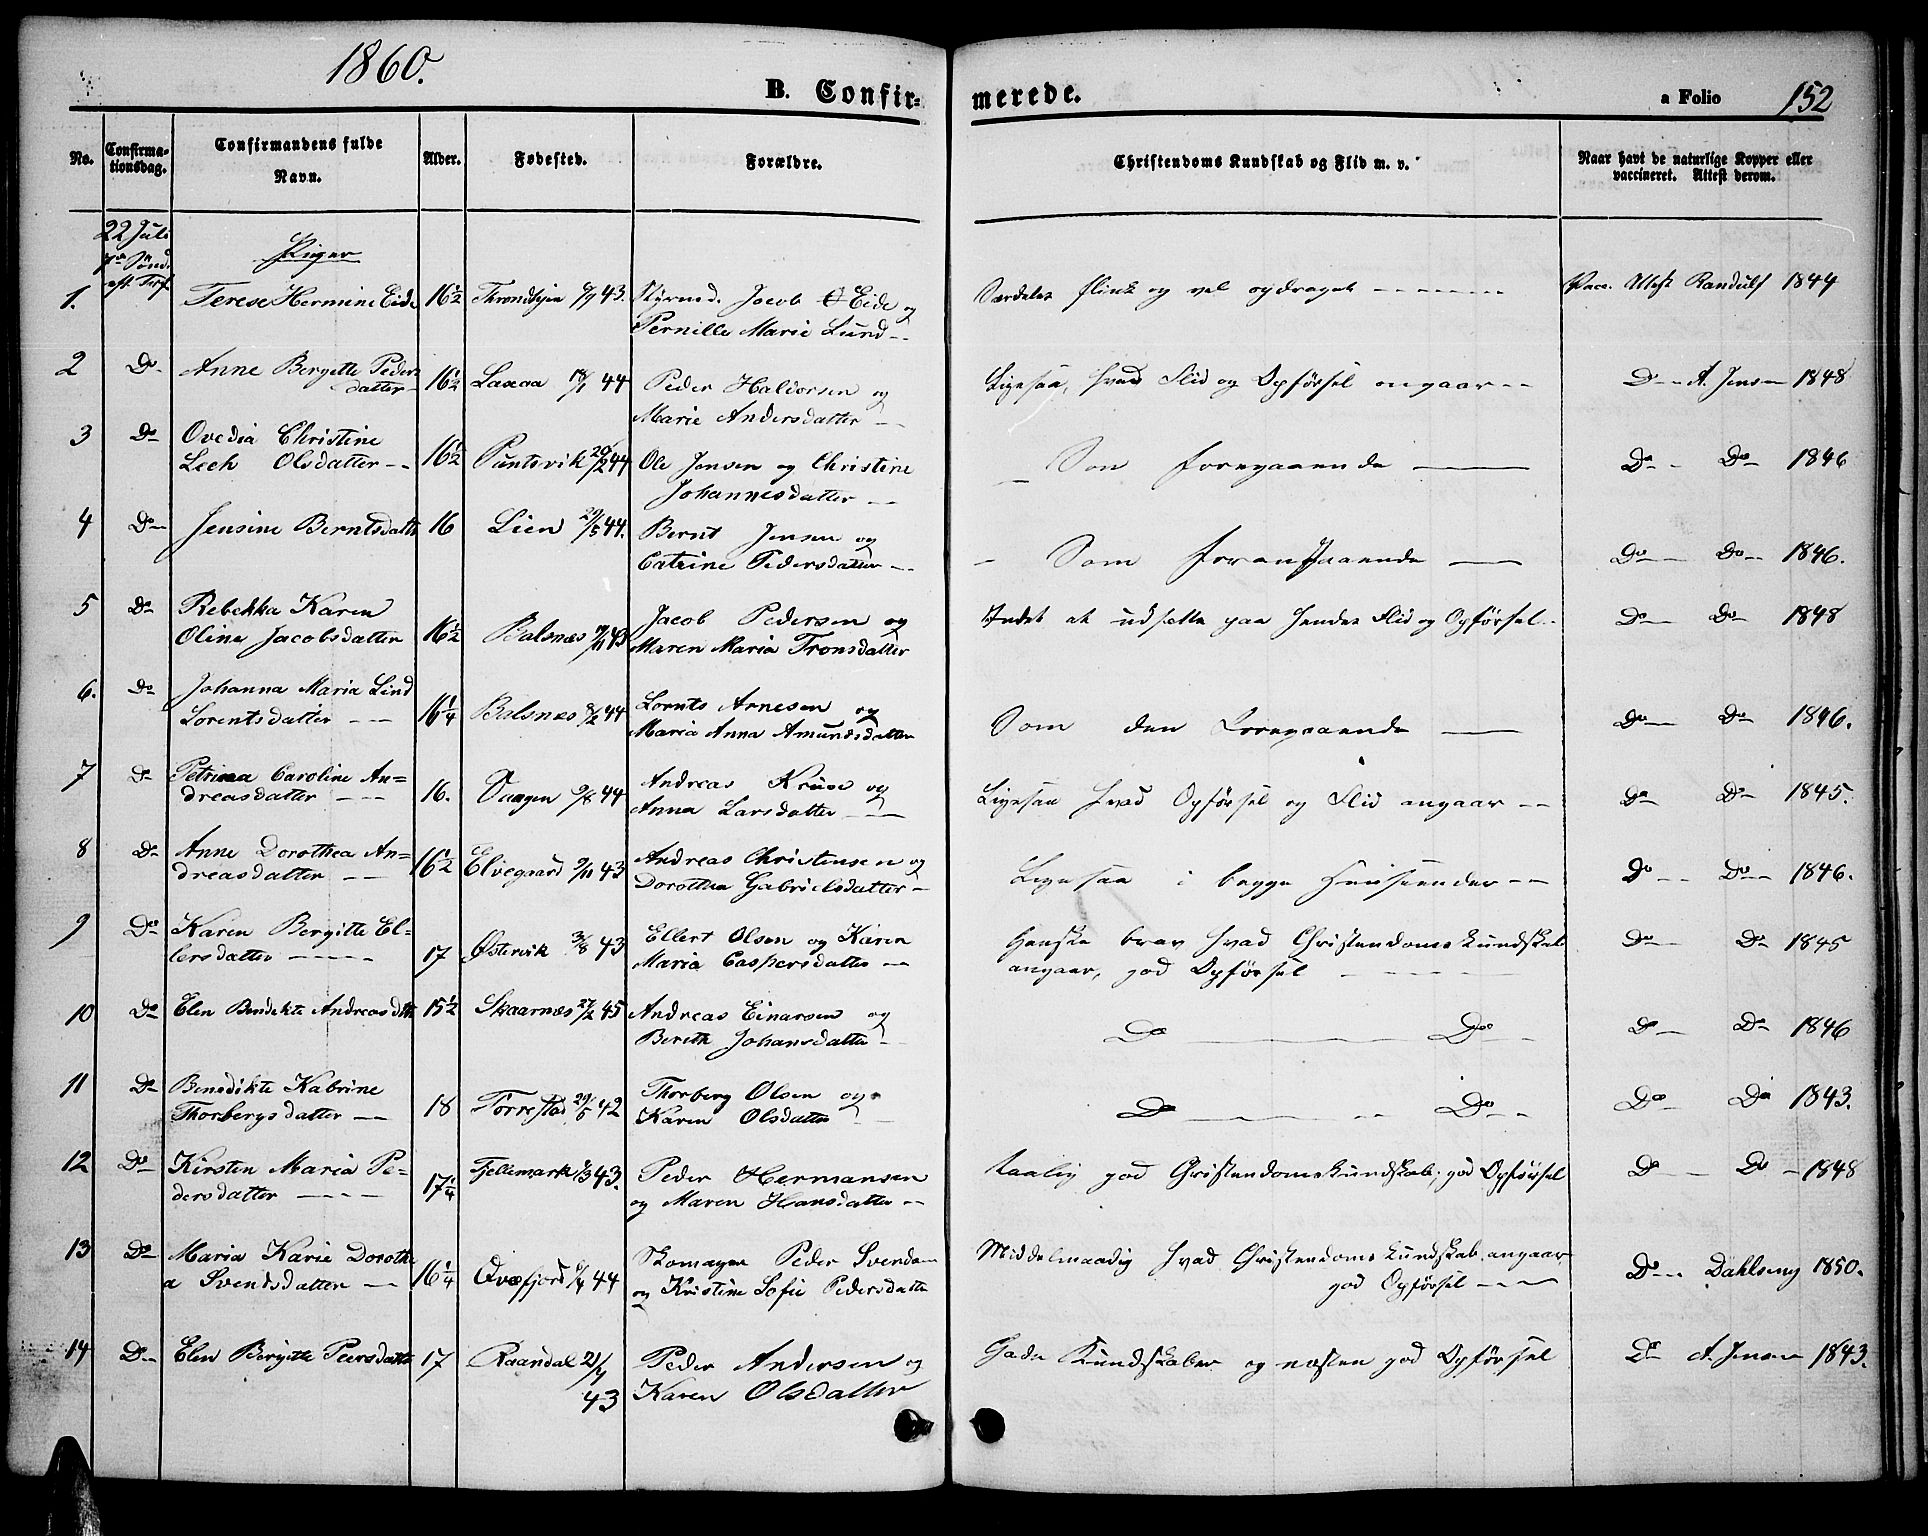 1860.
B. Confir-
merede.
a Folio 152
No.
Confirma-
tionsdag.
Confirmandens fulde
Navn.
Alder.
Fødested.
Forældre.
Christendoms Kundskab og Flid m. v.
Naar havt de naturlige Kopper eller
vaccineret. Attest derom.
22 Juli
7de Sønd.
eft. Tref.
Piger
1. Terese Hermine Eide 16½ Throndhjem 43. Jacob Eide og
Pernille Marie Lund
Særdeles flink og vel opdraget Vacc. Attest Randulf 1844
2 Do Anne Bergitte Peders
datter 16½ Laxaa 18/1 44 Peder Haldorsen og
Marie Andersdatter
Ligesaa, hvad Flid og Opførsel angaar Do A. Jensen 1848
3 Do Ovedia Christine
Lech Olsdatter 16½ Puntsvik 20/2 44 Ole Jensen og Christine
Johannesdatter
Som foregaaende Do Do 1846
4 Do Jensine Berntsdatt 16 Lien 29/5 44. Bernt Jensen og
Catrine Pedersdatter
Som foranstaaende Do Do 1846.
5 Do Rebekka Karen
Oline Jacobsdatter 16½ Balsnes 43 Jacob Pedersen og
Maren Maria Tronsdatter
Intet at udsætte paa hendes Flid og Opførsel. Do Do 1848
6. Do Johanna Maria Lind
Lorentsdatter 16¼ Balsnes 8/2 44 Lornts Arnesen og
Maria Anna Amundsdatter
Som den Foregaaende Do Do 1846.
7 Do Petrina Caroline An=
dreasdatter 16. Saagen 9/8 44 Andreas Kruse og
Anna Larsdatter
Ligesaa hvad Opførsel og Flid angaar Do Do 1845.
8 Do Anne Dorothea An=
dreasdatter 16½ Elvegaard 9/11 43 Andreas Christensen og
Dorothea Gabrielsdatter
Ligesaa i begge Henseender Do Do 1846.
9 Do Karen Bergitte El-
lersdatter 17 Østervik 3/8 43 Ellert Olsen og Karen
Maria Caspersdatter
Ganske brav hvad Christendomskundskab
angaar, god Opførsel Do Do 1845
10 Do Elen Bendikte Andreasdtt 15½ Skaarnes 27/2 45 Andreas Einarsen og
Berith Johansdatter
Do Do Do Do 1846
11 Do Benedikte Katrine
Thorbergsdatter 18 Forrestad 29/5 42 Thorberg Olsen og
Karen Olsdatter
Do Do Do Do 1843.
12 Do Kirsten Maria Pe-
dersdatter 17¼ Fjellemark 43. Peder Hermansen
og Maren Hansdatter
taalig god Christendomskundskab; god Opførsel Do Do 1848
13 Do Maria Karie Dorothe
a Svendsdatter 16¼ Qvæfjord 44 Skomager Peder Svendsen
og Kristine Sofie Pedersdatte
Middelmaadig hvad Christendomskundskab angaar
god Opførsel Do Dahlseng 1850.
14 Do Elen Bergitte Peersdatte 17 Raandal 21/7
43 Peder Andersen og
Karen Olsdatter
Gode Kundskaber og næsten god Opførsel Do A. Jensen 1843.